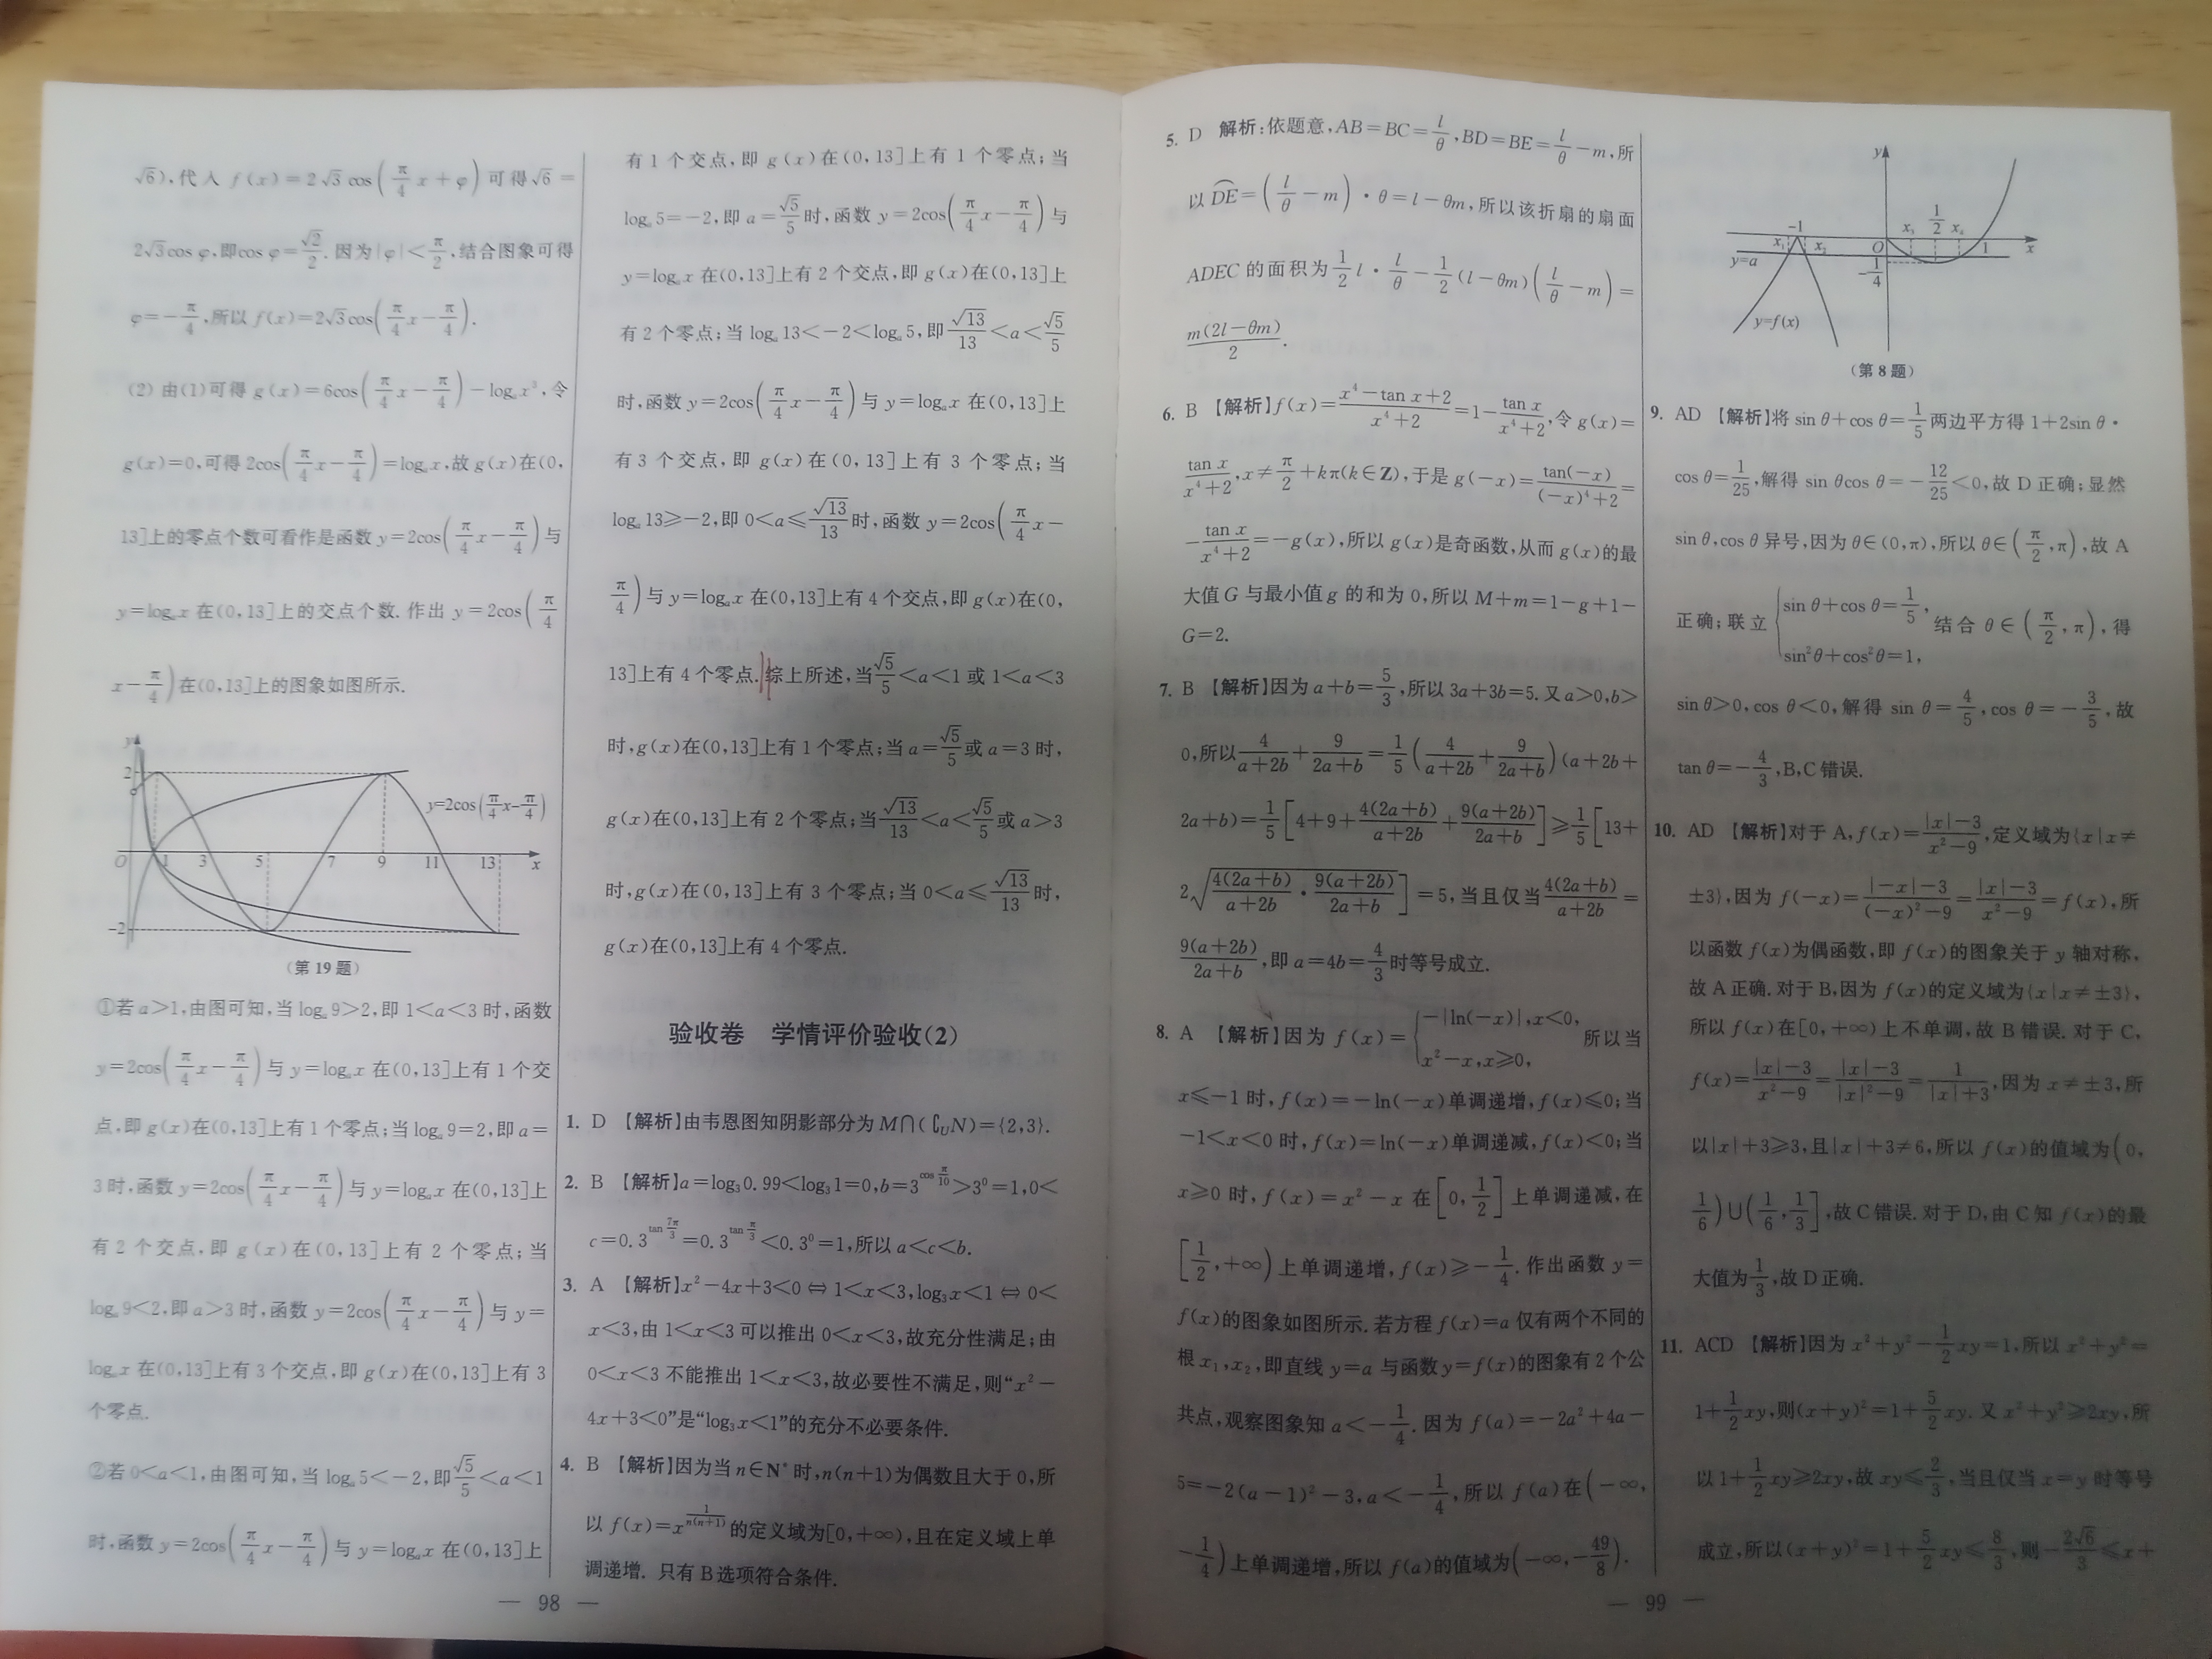 √6),代入 f(x)=2√3cos(π/4 x+φ)可得√6=
2√3cos φ,即cos φ=√2/2. 因为|φ|<π/2,结合图象可得
φ=-π/4,所以 f(x)=2√3cos(π/4 x-π/4).
(2) 由(1)可得 g(x)=6cos(π/4 x-π/4)-logₐx³,令
g(x)=0,可得2cos(π/4 x-π/4)=logₐx,故g(x)在(0,
13]上的零点个数可看作是函数y=2cos(π/4 x-π/4)与
y=logₐx在(0,13]上的交点个数. 作出 y=2cos(π/4
x-π/4)在(0,13]上的图象如图所示.
y
2
y=2cos(π/4 x-π/4)
O 1 3 5 7 9 11 13 x
-2
(第19题)
①若a>1,由图可知,当logₐ9>2,即1<a<3时,函数
y=2cos(π/4 x-π/4)与y=logₐx在(0,13]上有1个交
点,即g(x)在(0,13]上有1个零点;当logₐ9=2,即a=
3时,函数y=2cos(π/4 x-π/4)与y=logₐx在(0,13]上
有2个交点,即g(x)在(0,13]上有2个零点;当
logₐ9<2,即a>3时,函数y=2cos(π/4 x-π/4)与y=
logₐx在(0,13]上有3个交点,即g(x)在(0,13]上有3
个零点.
②若0<a<1,由图可知,当logₐ5<-2,即√5/5<a<1
时,函数y=2cos(π/4 x-π/4)与y=logₐx在(0,13]上
有1个交点,即g(x)在(0,13]上有1个零点;当
logₐ5=-2,即a=√5/5时,函数y=2cos(π/4 x-π/4)与
y=logₐx在(0,13]上有2个交点,即g(x)在(0,13]上
有2个零点;当logₐ13<-2<logₐ5,即√13/13<a<√5/5
时,函数y=2cos(π/4 x-π/4)与y=logₐx在(0,13]上
有3个交点,即g(x)在(0,13]上有3个零点;当
logₐ13≥-2,即0<a≤√13/13时,函数y=2cos(π/4 x-
π/4)与y=logₐx在(0,13]上有4个交点,即g(x)在(0,
13]上有4个零点.综上所述,当√5/5<a<1或1<a<3
时,g(x)在(0,13]上有1个零点;当a=√5/5或a=3时,
g(x)在(0,13]上有2个零点;当√13/13<a<√5/5或a>3
时,g(x)在(0,13]上有3个零点;当0<a≤√13/13时,
g(x)在(0,13]上有4个零点.
验收卷 学情评价验收(2)
1. D 【解析】由韦恩图知阴影部分为M∩(∁ᵤN)={2,3}.
2. B 【解析】a=log₃0.99<log₃1=0,b=3^(cos π/10)>3⁰=1,0<
c=0.3^(tan 7π/3)=0.3^(tan π/3)<0.3⁰=1,所以a<c<b.
3. A 【解析】x²-4x+3<0⇔1<x<3,log₃x<1⇔0<
x<3,由1<x<3可以推出0<x<3,故充分性满足;由
0<x<3不能推出1<x<3,故必要性不满足,则“x²-
4x+3<0”是“log₃x<1”的充分不必要条件.
4. B 【解析】因为当n∈N*时,n(n+1)为偶数且大于0,所
以f(x)=x^(1/(n(n+1)))的定义域为[0,+∞),且在定义域上单
调递增. 只有B选项符合条件.
— 98 —
5. D 解析:依题意,AB=BC=l/θ,BD=BE=l/θ-m,所
以DE⌢=(l/θ-m)·θ=l-θm,所以该折扇的扇面
ADEC的面积为1/2 l·l/θ-1/2(l-θm)(l/θ-m)=
m(2l-θm)/2.
6. B 【解析】f(x)=(x⁴-tan x+2)/(x⁴+2)=1-tan x/(x⁴+2),令g(x)=
tan x/(x⁴+2),x≠π/2+kπ(k∈Z),于是g(-x)=tan(-x)/((-x)⁴+2)=
-tan x/(x⁴+2)=-g(x),所以g(x)是奇函数,从而g(x)的最
大值G与最小值g的和为0,所以M+m=1-g+1-
G=2.
7. B 【解析】因为a+b=5/3,所以3a+3b=5.又a>0,b>
0,所以4/(a+2b)+9/(2a+b)=1/5(4/(a+2b)+9/(2a+b))(a+2b+
2a+b)=1/5[4+9+4(2a+b)/(a+2b)+9(a+2b)/(2a+b)]≥1/5[13+
2√(4(2a+b)/(a+2b)·9(a+2b)/(2a+b))]=5,当且仅当4(2a+b)/(a+2b)=
9(a+2b)/(2a+b),即a=4b=4/3时等号成立.
8. A 【解析】因为f(x)={-|ln(-x)|,x<0, x²-x,x≥0, 所以当
x≤-1时,f(x)=-ln(-x)单调递增,f(x)≤0;当
-1<x<0时,f(x)=ln(-x)单调递减,f(x)<0;当
x≥0时,f(x)=x²-x在[0,1/2]上单调递减,在
[1/2,+∞)上单调递增,f(x)≥-1/4. 作出函数y=
f(x)的图象如图所示.若方程f(x)=a仅有两个不同的
根x₁,x₂,即直线y=a与函数y=f(x)的图象有2个公
共点,观察图象知a<-1/4. 因为f(a)=-2a²+4a-
5=-2(a-1)²-3,a<-1/4,所以f(a)在(-∞,
-1/4)上单调递增,所以f(a)的值域为(-∞,-49/8).
y
-1 x₃ 1/2 x₄
x₁ x₂ O 1 x
y=a
-1/4
y=f(x)
(第8题)
9. AD 【解析】将sin θ+cos θ=1/5两边平方得1+2sin θ·
cos θ=1/25,解得sin θcos θ=-12/25<0,故D正确;显然
sin θ,cos θ异号,因为θ∈(0,π),所以θ∈(π/2,π),故A
正确;联立{sin θ+cos θ=1/5, sin²θ+cos²θ=1, 结合θ∈(π/2,π),得
sin θ>0,cos θ<0,解得sin θ=4/5,cos θ=-3/5,故
tan θ=-4/3,B,C错误.
10. AD 【解析】对于A,f(x)=(|x|-3)/(x²-9),定义域为{x|x≠
±3},因为f(-x)=(|-x|-3)/((-x)²-9)=(|x|-3)/(x²-9)=f(x),所
以函数f(x)为偶函数,即f(x)的图象关于y轴对称,
故A正确.对于B,因为f(x)的定义域为{x|x≠±3},
所以f(x)在[0,+∞)上不单调,故B错误.对于C,
f(x)=(|x|-3)/(x²-9)=(|x|-3)/(|x|²-9)=1/(|x|+3),因为x≠±3,所
以|x|+3≥3,且|x|+3≠6,所以f(x)的值域为(0,
1/6)∪(1/6,1/3],故C错误.对于D,由C知f(x)的最
大值为1/3,故D正确.
11. ACD 【解析】因为x²+y²-1/2 xy=1,所以x²+y²=
1+1/2 xy,则(x+y)²=1+5/2 xy. 又x²+y²≥2xy,所
以1+1/2 xy≥2xy,故xy≤2/3,当且仅当x=y时等号
成立,所以(x+y)²=1+5/2 xy≤8/3,则-2√6/3≤x+
— 99 —